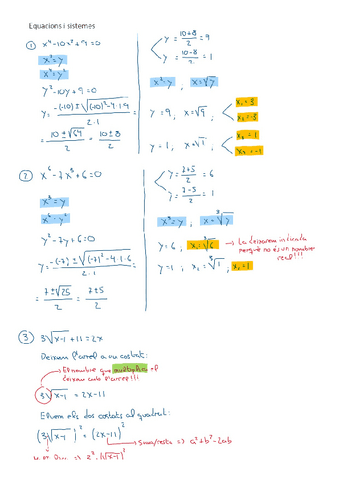 Equacions i sistemes
① x⁴-10x²+9=0
x²=y
x⁴=y²
y²-10y+9=0
y = -(-10)±√((-10)²-4·1·9) / 2·1
= 10±√64 / 2 = 10±8 / 2
y = 10+8 / 2 = 9
y = 10-8 / 2 = 1
x²=y ; x=√y
y=9 ; x=√9 x₁=3
x₂=-3
y=1 ; x=√1 x₃=1
x₄=-1
② x⁶-7x³+6=0
x³=y
x⁶=y²
y²-7y+6=0
y = -(-7)±√((-7)²-4·1·6) / 2·1
= 7±√25 / 2 = 7±5 / 2
y = 7+5 / 2 = 6
y = 7-5 / 2 = 1
x³=y ; x=∛y
y=6 ; x₁=∛6 → La deixarem
perquè no és un nombre
real!!!
y=1 ; x₁=∛1 ; x₂=1
③ 3√x-1 +11=2x
Deixem l'arrel a un costat:
→ El nombre que multiplica el
deixem amb l'arrel!!!
3√x-1 = 2x-11
Elevem els dos costats al quadrat:
(3√x-1)² = (2x-11)²
→ Suma/resta ⇒ a²+b²-2ab
⇒ 3²·(√x-1)²